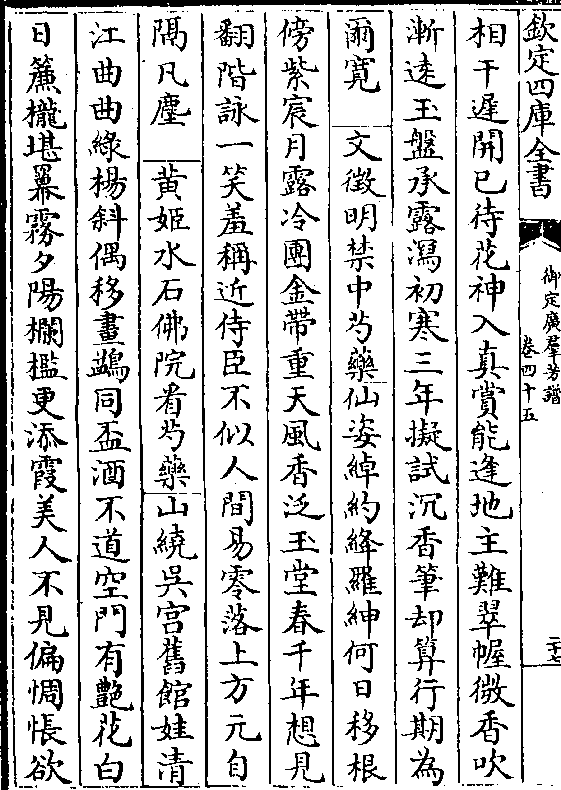 欽定四庫全書
御定廣羣芳譜
卷四十五
二十七
相干遲開已待花神入真賞能逢地主難翠幄微香吹
漸遠玉盤承露瀉初寒三年擬試沉香筆却算行期為
爾寛　文徴明禁中芍藥仙姿綽約絳羅紳何日移根
傍紫宸月露冷團金帶重天風香泛玉堂春千年想見
翻階詠一笑羞稱近侍臣不似人間易零落上方元自
隔凡塵　黄姬水石佛院看芍藥山繞吳宫舊館娃清
江曲曲綠楊斜偶移畫鷁同盃酒不道空門有艷花白
日簾櫳堪羃霧夕陽欄檻更添霞美人不見偏惆悵欲